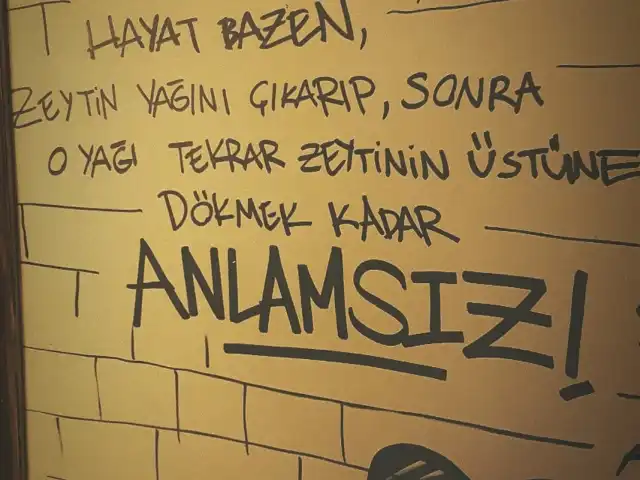 HAYAT BAZEN,
ZEYTİN YAĞINI ÇIKARIP, SONRA
O YAĞI TEKRAR ZEYTİNİN ÜSTÜNE
DÖKMEK KADAR
ANLAMSIZ!